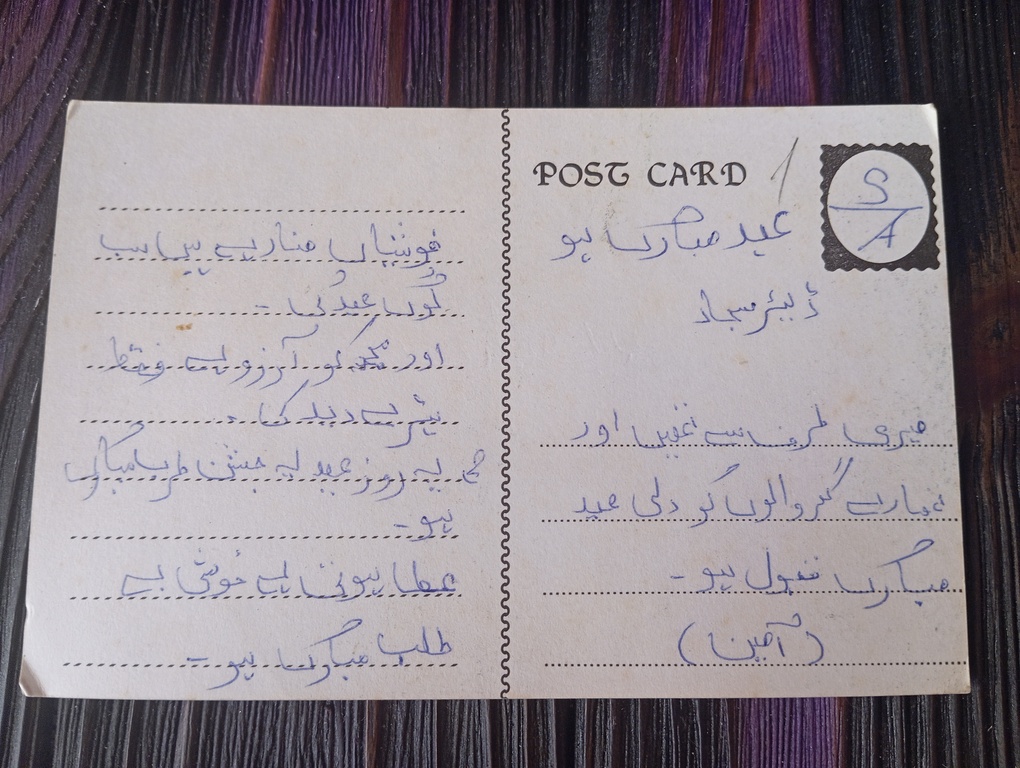 POST CARD
S
A
عید مبارک ہو
ڈیئر سجاد
میری طرف سے تمہیں اور
تمہارے گھر والوں کو دلی عید
مبارک قبول ہو۔
(آمین)
خوشیاں منا رہے ہیں سب
لوگ عید کی ۔
اور مجھ کو آرزو ہے فقط
تیرے دید کی ۔
یہ روز عید یہ جشن طرب مبارک
ہو۔
عطا ہوئی ہے خوشی بے
طلب مبارک ہو۔